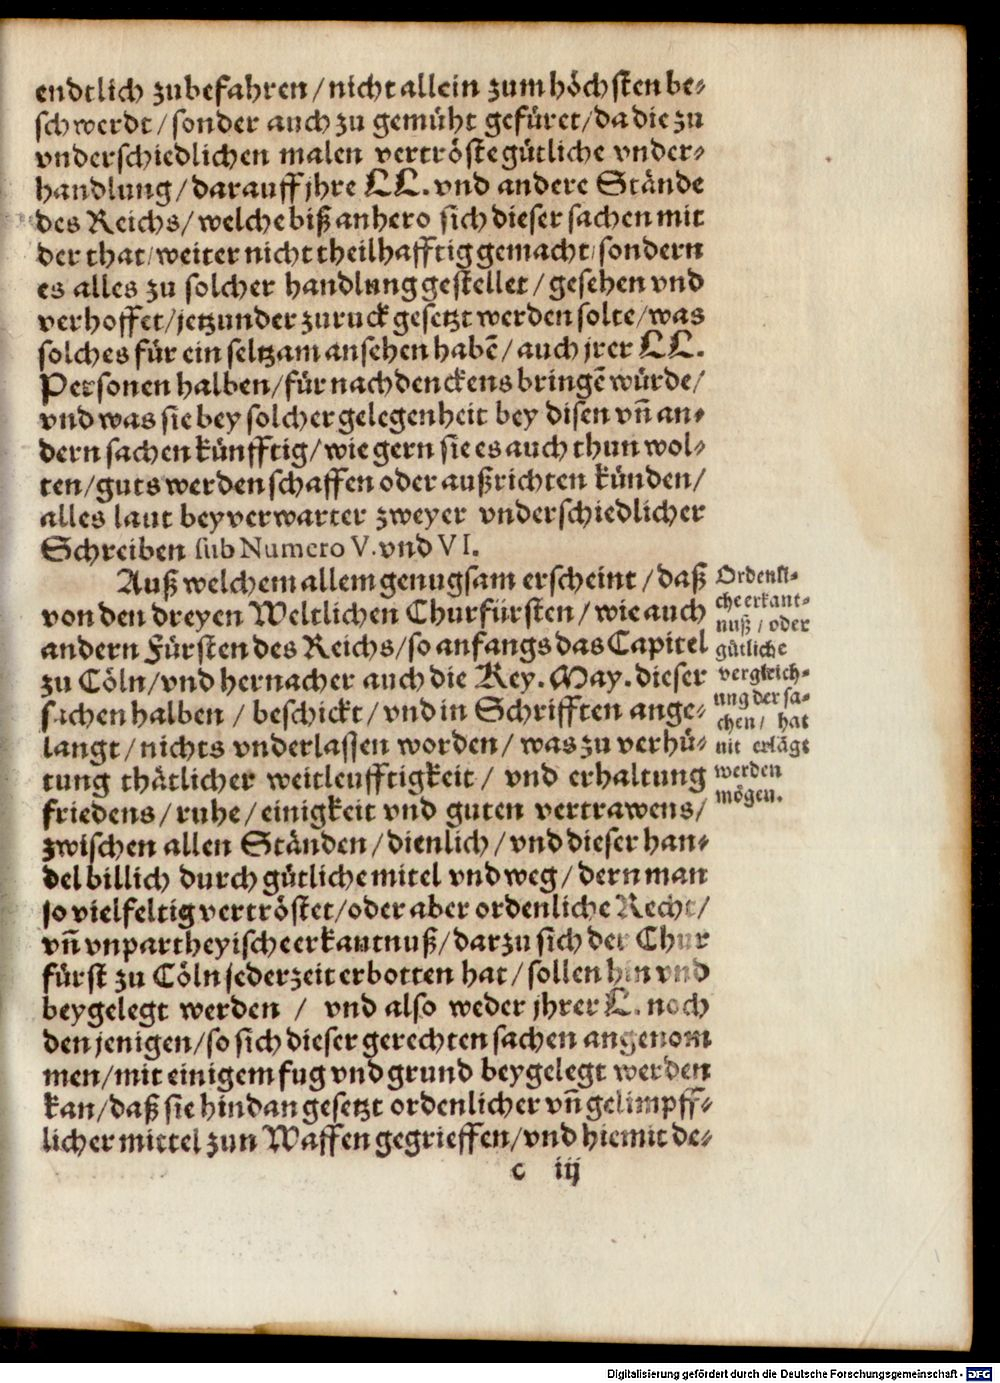 endtlich zubefahren / nicht allein zum höchsten be-
schwerdt / sonder auch zu gemüht gefüret / da die zu
vnderschiedlichen malen vertröste gütliche vnder-
handlung / darauff jhre LL. vnd andere Stände
des Reichs / welche biß anhero sich dieser sachen mit
der that / weiter nicht theilhafftig gemacht / sondern
es alles zu solcher handlung gestellet / gesehen vnd
verhoffet / jetzunder zuruck gesetzt werden solte / was
solches für ein seltzam ansehen habē / auch jrer LL.
Personen halben / für nachdenckens bringē würde /
vnd was sie bey solcher gelegenheit bey disen vñ an-
dern sachen künfftig / wie gern sie es auch thun wol-
ten / guts werden schaffen oder außrichten künden /
alles laut beyverwarter zweyer vnderschiedlicher
Schreiben sub Numero V. vnd VI.
Auß welchem allem genugsam erscheint / daß
von den dreyen Weltlichen Churfürsten / wie auch
andern Fürsten des Reichs / so anfangs das Capitel
zu Cöln / vnd hernacher auch die Key. May. dieser
sachen halben / beschickt / vnd in Schrifften ange-
langt / nichts vnderlassen worden / was zu verhü-
tung thätlicher weitleufftigkeit / vnd erhaltung
friedens / ruhe / einigkeit vnd guten vertrawens /
zwischen allen Ständen / dienlich / vnd dieser han-
del billich durch gütliche mitel vnd weg / dern man
so vielfeltig vertröstet / oder aber ordenliche Recht /
vñ vnpartheyische erkantnuß / darzu sich der Chur
fürst zu Cöln jederzeit erbotten hat / sollen hin vnd
beygelegt werden / vnd also weder jhrer L. noch
den jenigen / so sich dieser gerechten sachen angenom
men / mit einigem fug vnd grund beygelegt werden
kan / daß sie hindan gesetzt ordenlicher vñ gelimpff-
licher mittel zun Waffen gegrieffen / vnd hiemit de-
c iij
Ordenli-
che erkant-
nuß / oder
gütliche
vergleich-
ung der sa-
chen / hat
nit erlägt
werden
mögen.
Digitalisierung gefördert durch die Deutsche Forschungsgemeinschaft - DFG